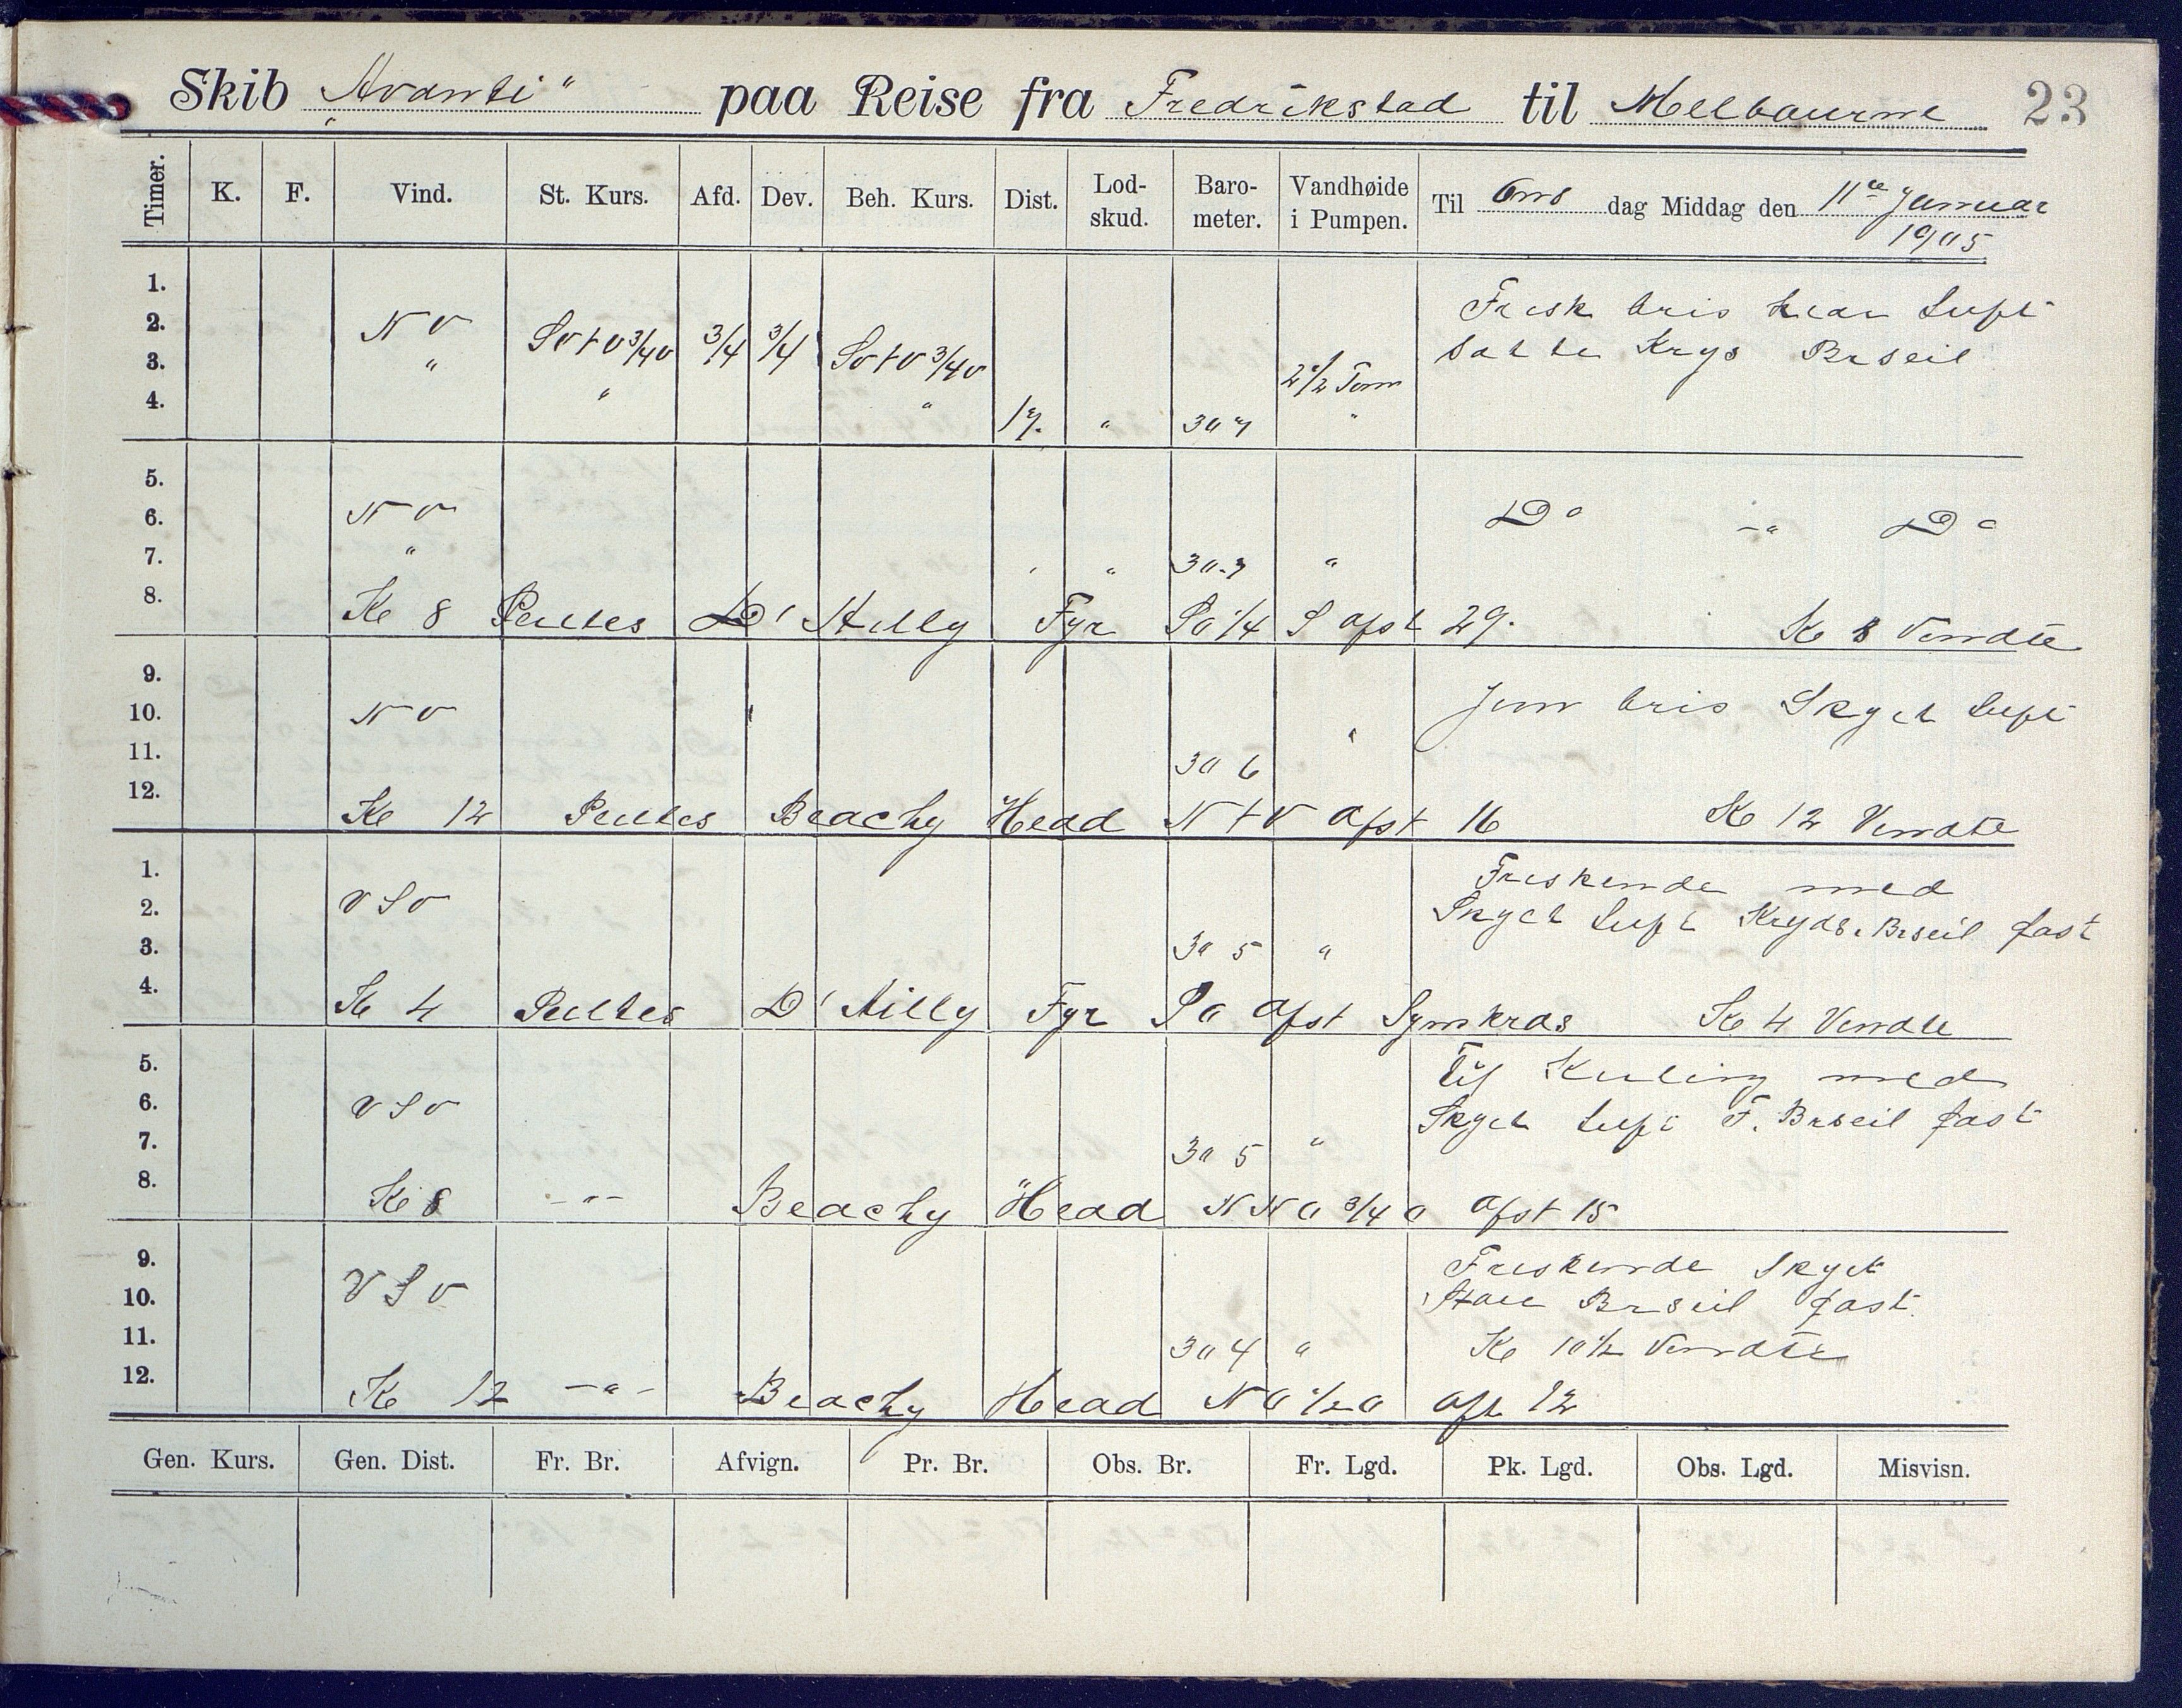 Skib „Avanti“ paa Reise fra Fredrikstad til Melbourne 23
Timer. K. F. Vind. St. Kurs. Afd. Dev. Beh. Kurs. Dist. Lod-skud. Baro-meter. Vandhøide i Pumpen. Til Ons dag Middag den 11te Januar 1905
1. Frisk bris klar Luft
2. NV SV t V 3/4 V 3/4 3/4 SV t V 3/4 V satte Krys Brseil
3. " 2 1/2 Tom
4. " " 17. " 30 7 "
5.
6. NV Do -"- Do
7. " " " 30.7 "
8. Kl 8 Peiltes D' Ailly Fyr SO 1/4 S afst 29. Kl 8 Vendte
9.
10. NV Jevn bris Skyet Luft
11. 30 6 "
12. Kl 12 Peiltes Beachy Head N t V Afst 16 Kl 12 Vendte
1. Friskende med
2. VSV Skyet Luft Kryds. Brseil fast
3. 30 5 "
4. Kl 4 Peiltes D' Ailly Fyr SO Afst Synskrds Kl 4 Vendte
5. Kuling med
6. VSV Skyet Luft F. Brseil fast
7. 30 5 "
8. Kl 8 -"- Beachy Head NNO 3/4 O Afst 15
9. Friskende Skyet
10. VSV Store Brseil fast.
11. 30 4 " Kl 10 1/2 Vendte
12. Kl 12 -"- Beachy Head NO 1/2 O Afst 12
Gen. Kurs. Gen. Dist. Fr. Br. Afvign. Pr. Br. Obs. Br. Fr. Lgd. Pk. Lgd. Obs. Lgd. Misvisn.